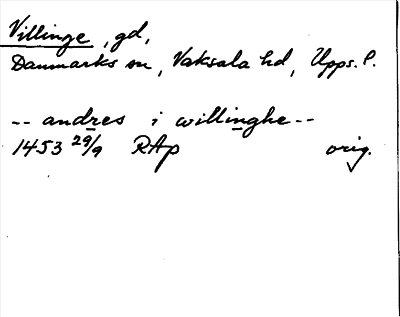 Villinge, gd,
Danmarks sn, Vaksala hd, Upps. l.
-- andres i willinghe --
1453 29/9 RAp orig.